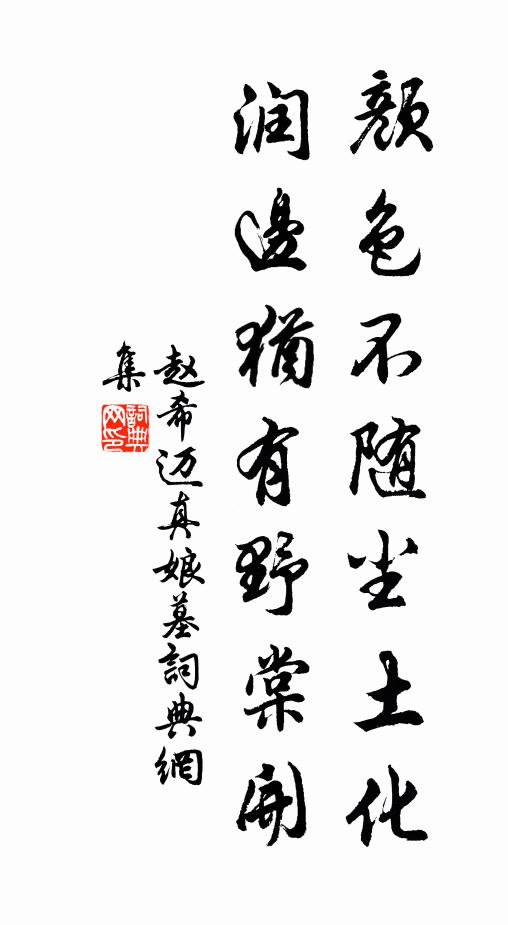 颜色不随尘土化
润边猶有野棠開
赵希迈真娘墓詞典網
集
詞典
网印